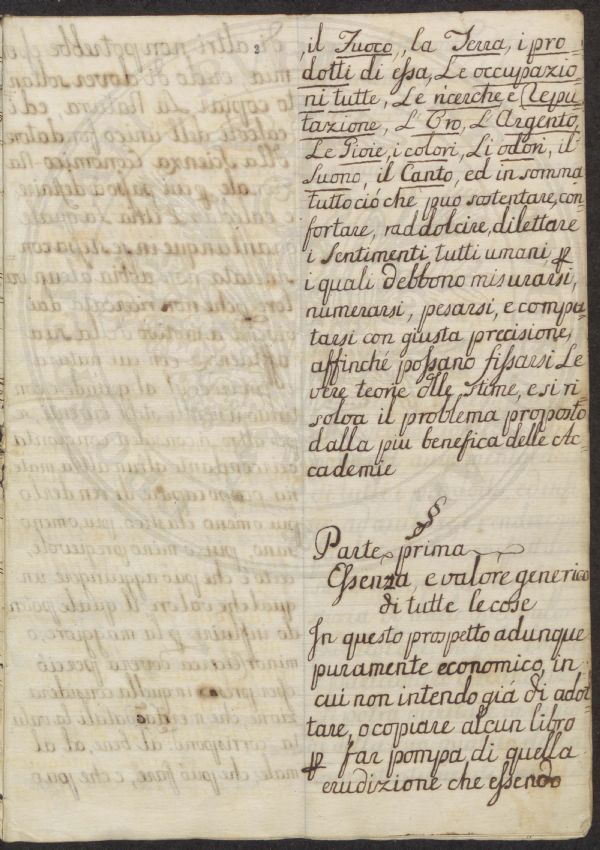 2
, il Fuoco, la Terra, i pro-
dotti di essa, Le occupazio-
ni tutte, Le ricerche e Repu-
tazione, L'Oro, L'Argento,
Le Gioie, i colori, Li odori, il
Suono, il Canto, ed in somma
tutto ciò che può sostentare, con
fortare, raddolcire, dilettare
i Sentimenti tutti umani, ꝑ
i quali debbono misurarsi,
numerarsi, pesarsi, e compu-
tarsi con giusta precisione,
affinché possano fissarsi Le
vere teorie dlle stime, e si ri
solva il problema proposto
dalla piu benefica delle Ac-
cademie
§
Parte prima
Essenza, e valore generico
di tutte le cose
In questo prospetto adunque
puramente economico, in
cui non intendo giá di adot-
tare, o copiare alcun libro
ꝑ far pompa di quella
erudizione che essendo